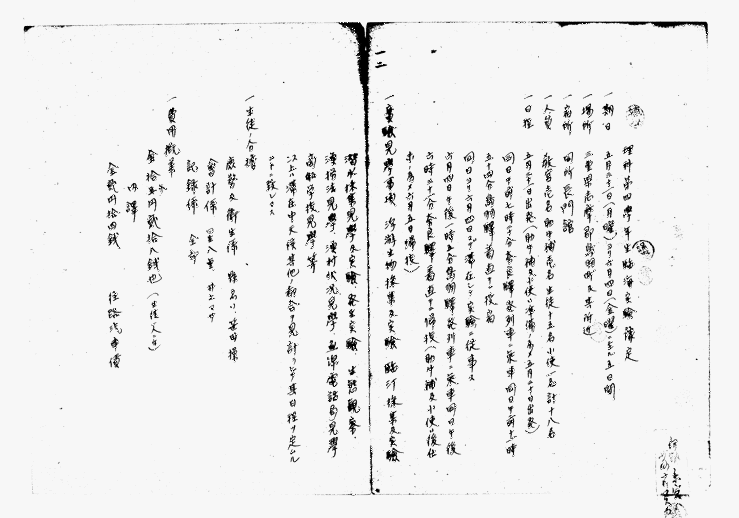 理科第四學年生臨海實驗豫定
一期日 五月三十一日(月曜)ヨリ六月四日(金曜)ニ至ル五日間
一場所 三重縣志摩郡鳥羽町及其附近
一宿所 同所長門館
一人員 教官壱名助手補壱名生徒十五名小使一名計十八名
一日程 五月三十一日出発(助手補及小使ハ準備ノ爲メ五月三十日出発)
同日午前七時十分奈良驛発列車ニ乗車同日午前十一時
五十四分鳥羽驛着直ニ投宿
同日ヨリ六月四日マデ滞在シテ實驗ニ従事ス
六月四日午後一時五分鳥羽驛発列車ニ乗車同日午後
六時二十八分奈良驛着直ニ帰校助手補及小使ハ後仕
末ノ爲メ六月五日帰校)
一實驗見學事項 浮游生物採集及實驗 臨汀採集及實驗
潜水採集見學及實驗 発生實驗 生態觀察
漁撈法見學 漁村状況見學 無線電話局見學
商船学校見學等
以上ハ滞在中天候其他ノ都合ヲ見計ヒ以テ其日程ヲ定ムル
コトニ致シマス
一生徒ノ分擔
庶務及衛生係
會計係 井上マサ
記録係 全部
一費用概算
金拾五円貳拾八銭也(生徒一人ニ付)
内譯
金貳円拾四銭 往路汽車賃
一二